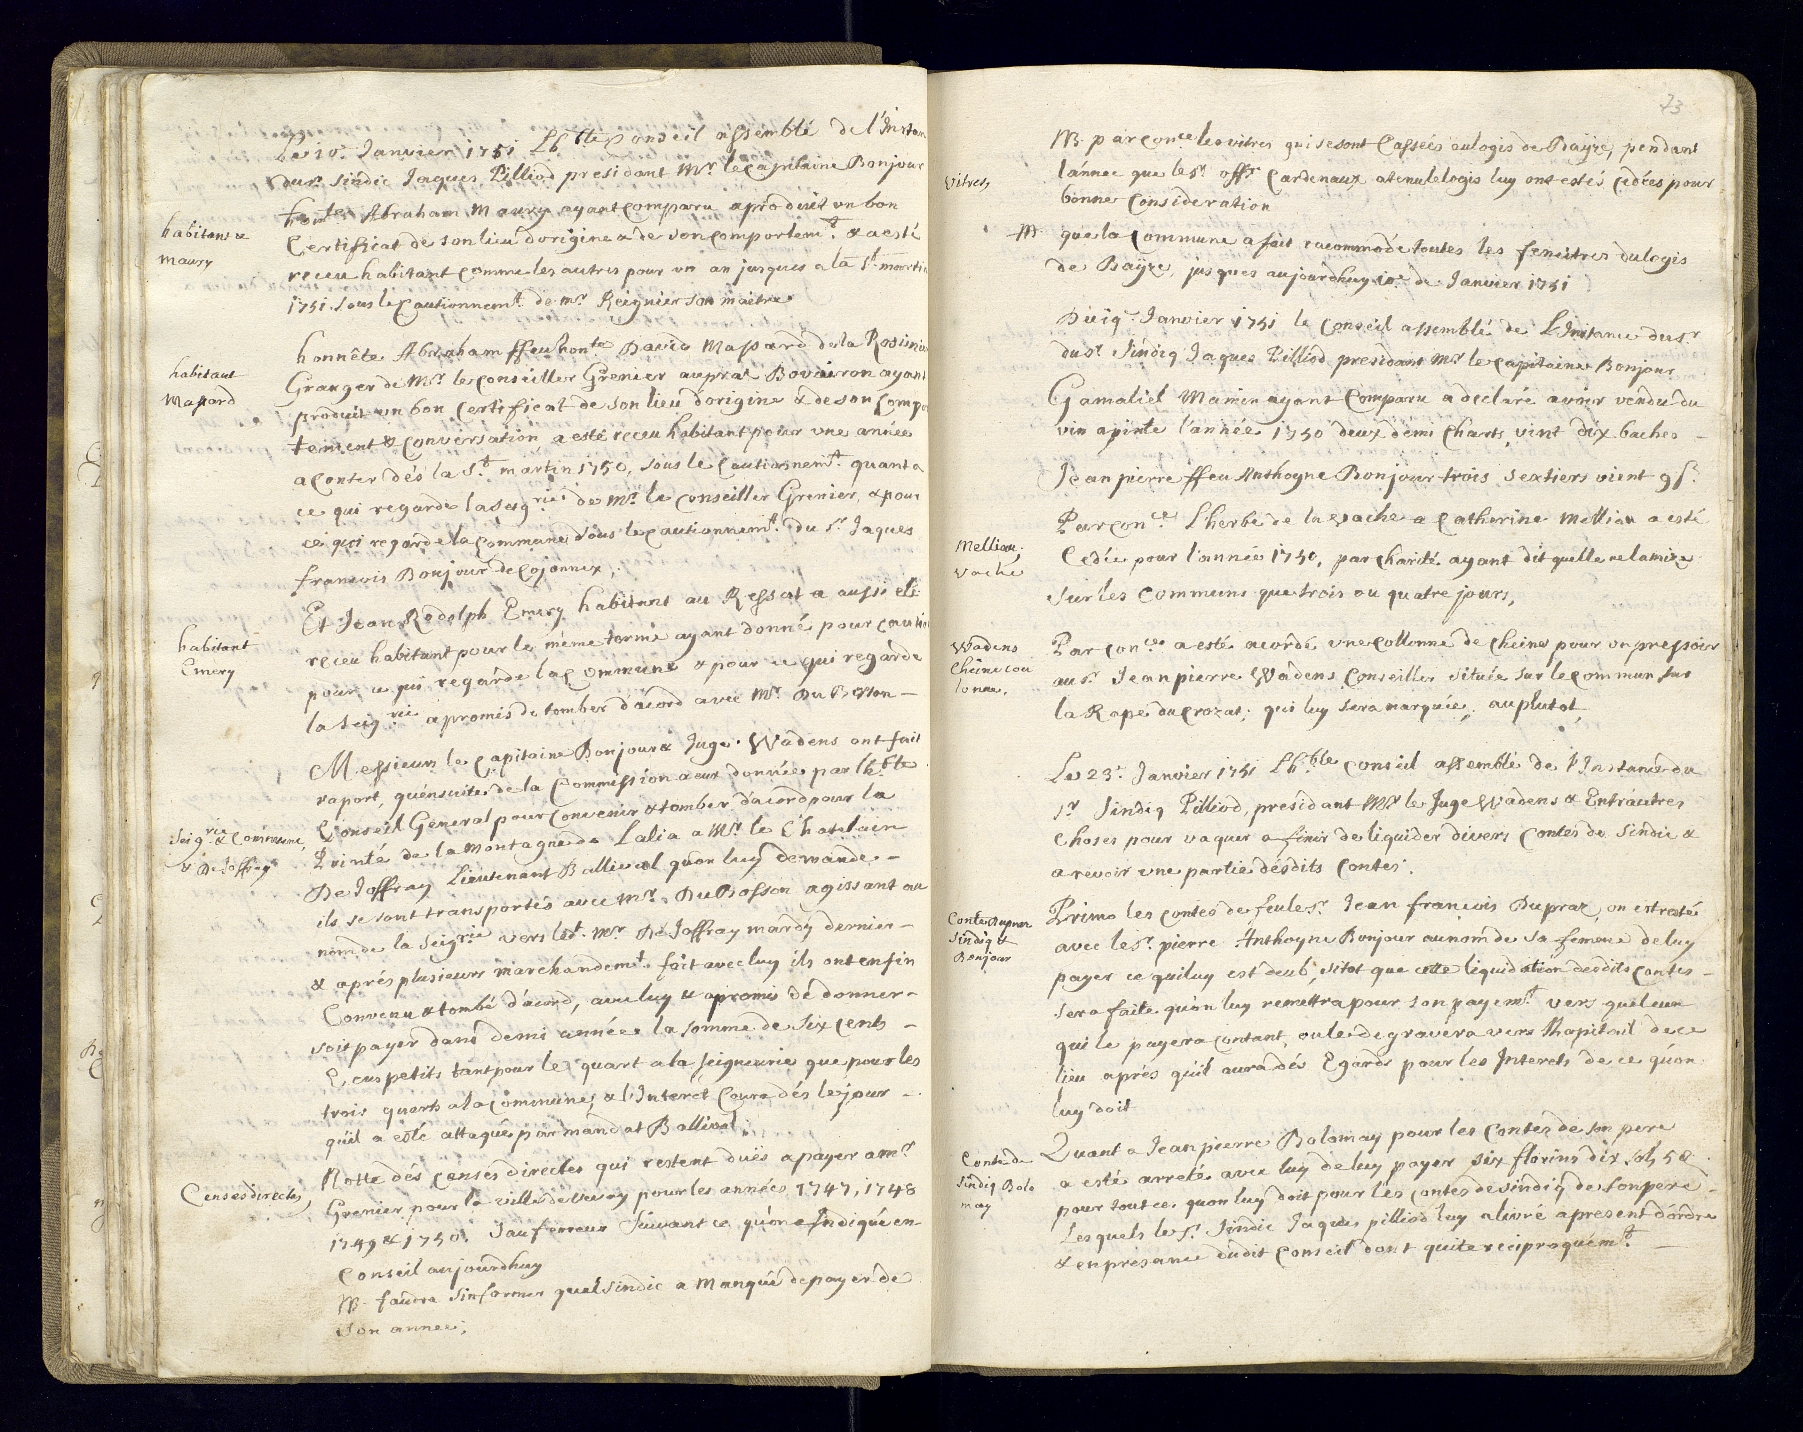 Le 10e. Janvier 1751 Lh.ble Conseil assemblé de l'Instan
du Sr. Sindic Jaques Pilliod presidant Mr. le Capitaine Bonjour
habitant
Maury
honte. Abraham Maury ayant comparu aproduit un bon
Certificat de son lieu d'origine & de son comportemt. & a esté
receu habitant comme les autres pour un an jusques a la St. martin
1751. sous le Cautionnemt. de Mr. Reignier son maitre
habitant
Mapard
honnête Abraham ffeu honte. David Mapard de la
Granger de Mr. le Conseiller Grenier au prat Bovairon ayant
produit un bon Certificat de son lieu d'origine & de son Compo
tement & Conversation a esté receu habitant pour une année
a Conter dés la St. martin 1750, sous le Cautionnemt. quant a
ce qui regarde la Seigrie. de Mr. le Conseiller Grenier, & pour
ce qui regarde la Commune sous le Cautionnemt. du Sr. Jaques
francois Bonjour de Cojonnex,
habitant
Emery
Et Jean Rodolph Emery habitant au Ressat a aussi eté
receu habitant pour le même terme ayant donné pour Caution
pour ce qui regarde la Commune & pour ce qui regarde
la Seigrie a promis de tomber d'acord avec Mr. DuBosson
Seigrie & Commune,
& De Joffrey
Messieurs le Capitaine Bonjour & Juge Wadens ont fait
raport, qu'ensuite de la Commission a eux donnée par lh.ble
Conseil General pour Convenir & tomber d'acord pour la
de la montagne de Lalia a Mr. le Chatelain
De Joffrey Lieutenant Ballival qu'on luy demande
ils se sont transportés avec Mr. DuBosson agissant au
nom de la Seigrie vers ledt. Mr De Joffrey mardy dernier
& aprés plusieurs marchandemt. fait avec luy ils ont enfin
Convenu & tombé d'acord, avec luy & apromis de donner
soit payer dans demi année la somme de Six Cents
Ecus petits tant pour le quart a la seigneurie que pour les
trois quarts a la Commune, & l'Interet Coura dés le jour
qu'il a esté attaqué par mandat Ballival,
Censes directes,
Notte dés Censes directes qui restent dués a payer a Mr.
Grenier pour la ville de Vevey pour les années 1747, 1748
1749 & 1750. Sauf erreur Suivant ce qu'on a Indiqué en
Conseil aujourdhuy
NB. faudra S'informer quel Sindic a Manqué de payer de
son année;
73
Vitres
NB. par Conce les vitres qui se sont Cassées au logis de Bayze, pendant
lánnee que le Sr. offr. Cardenaux a tenu le logis luy ont estés Cedées pour
bonne Consideration
NB. que la Commune a fait racommodé toutes les fenestres du logis
de Bayze, jusques aujourdhuy 10e. de Janvier 1751
Janvier 1751 le Conseil assemblé de L'Instance du Sr.
du Sr. Sindiq Jaques Pilliod, presidant Mr. le Capitaine Bonjour
Gamaliel Mamin ayant Comparu a declaré avoir vendu du
vin a pinte l'année 1750 deux demi Charts, vint dix baches
Jean pierre ffeu Anthoyne Bonjour trois Sextiers vient 9 s.
Mellion,
Vache
Par Conce L'herbe de la vache a Catherine Mellion a esté
Cedée pour l'année 1750, par Charité ayant dit quelle ne la mize
sur les Communs que trois ou quatre jours,
Wadens
Chêine cou
lonne,
Par Conce a esté acordé une Collonne de Cheine pour un pressoir
au Sr. Jean pierre Wadens Conseiller située sur le Commun sus
la Rape du Crozat; qui luy sera marquée, au plutot,
Le 23e. Janvier 1751 Lh.ble Conseil assemblé de l'Instance du
Sr. Sindiq Pilliod, presidant Mr. le Juge Wadens & Entráutres
Choses pour vaquer a finir de liquider divers Contes de Sindic &
a revoir une partie desdits Contes.
Conte Dupraz
Sindiq &
Bonjour
Primo les contes de feu le Sr. Jean françois Dupraz, on est resté
avec le Sr. pierre Anthoyne Bonjour au nom de sa femme de luy
payer ce qui luy est deub, sitot que cette liquidation desdits Contes
sera faite qu'on luy remettra pour son payemt. vers quelcun
qui le payera Contant, ou le degravera vers Lhapitail de ce
lieu aprés qu'il aura dés Egards pour les Interets de ce qu'on
luy doit
Conte de
Sindiq Bolo
may
Quant a Jean pierre Bolomay pour les Contes de son pere
a esté arreté avec luy de luy payer Six florins dix sols 5 &
pour tout ce quon luy doit pour les contes de Sindiq de Son pere
Lesquels le Sr. Sindic Jaques pilliod luy a livré apresent d'ordre
& en presance dudit Conseil dont quite reciproquemt.